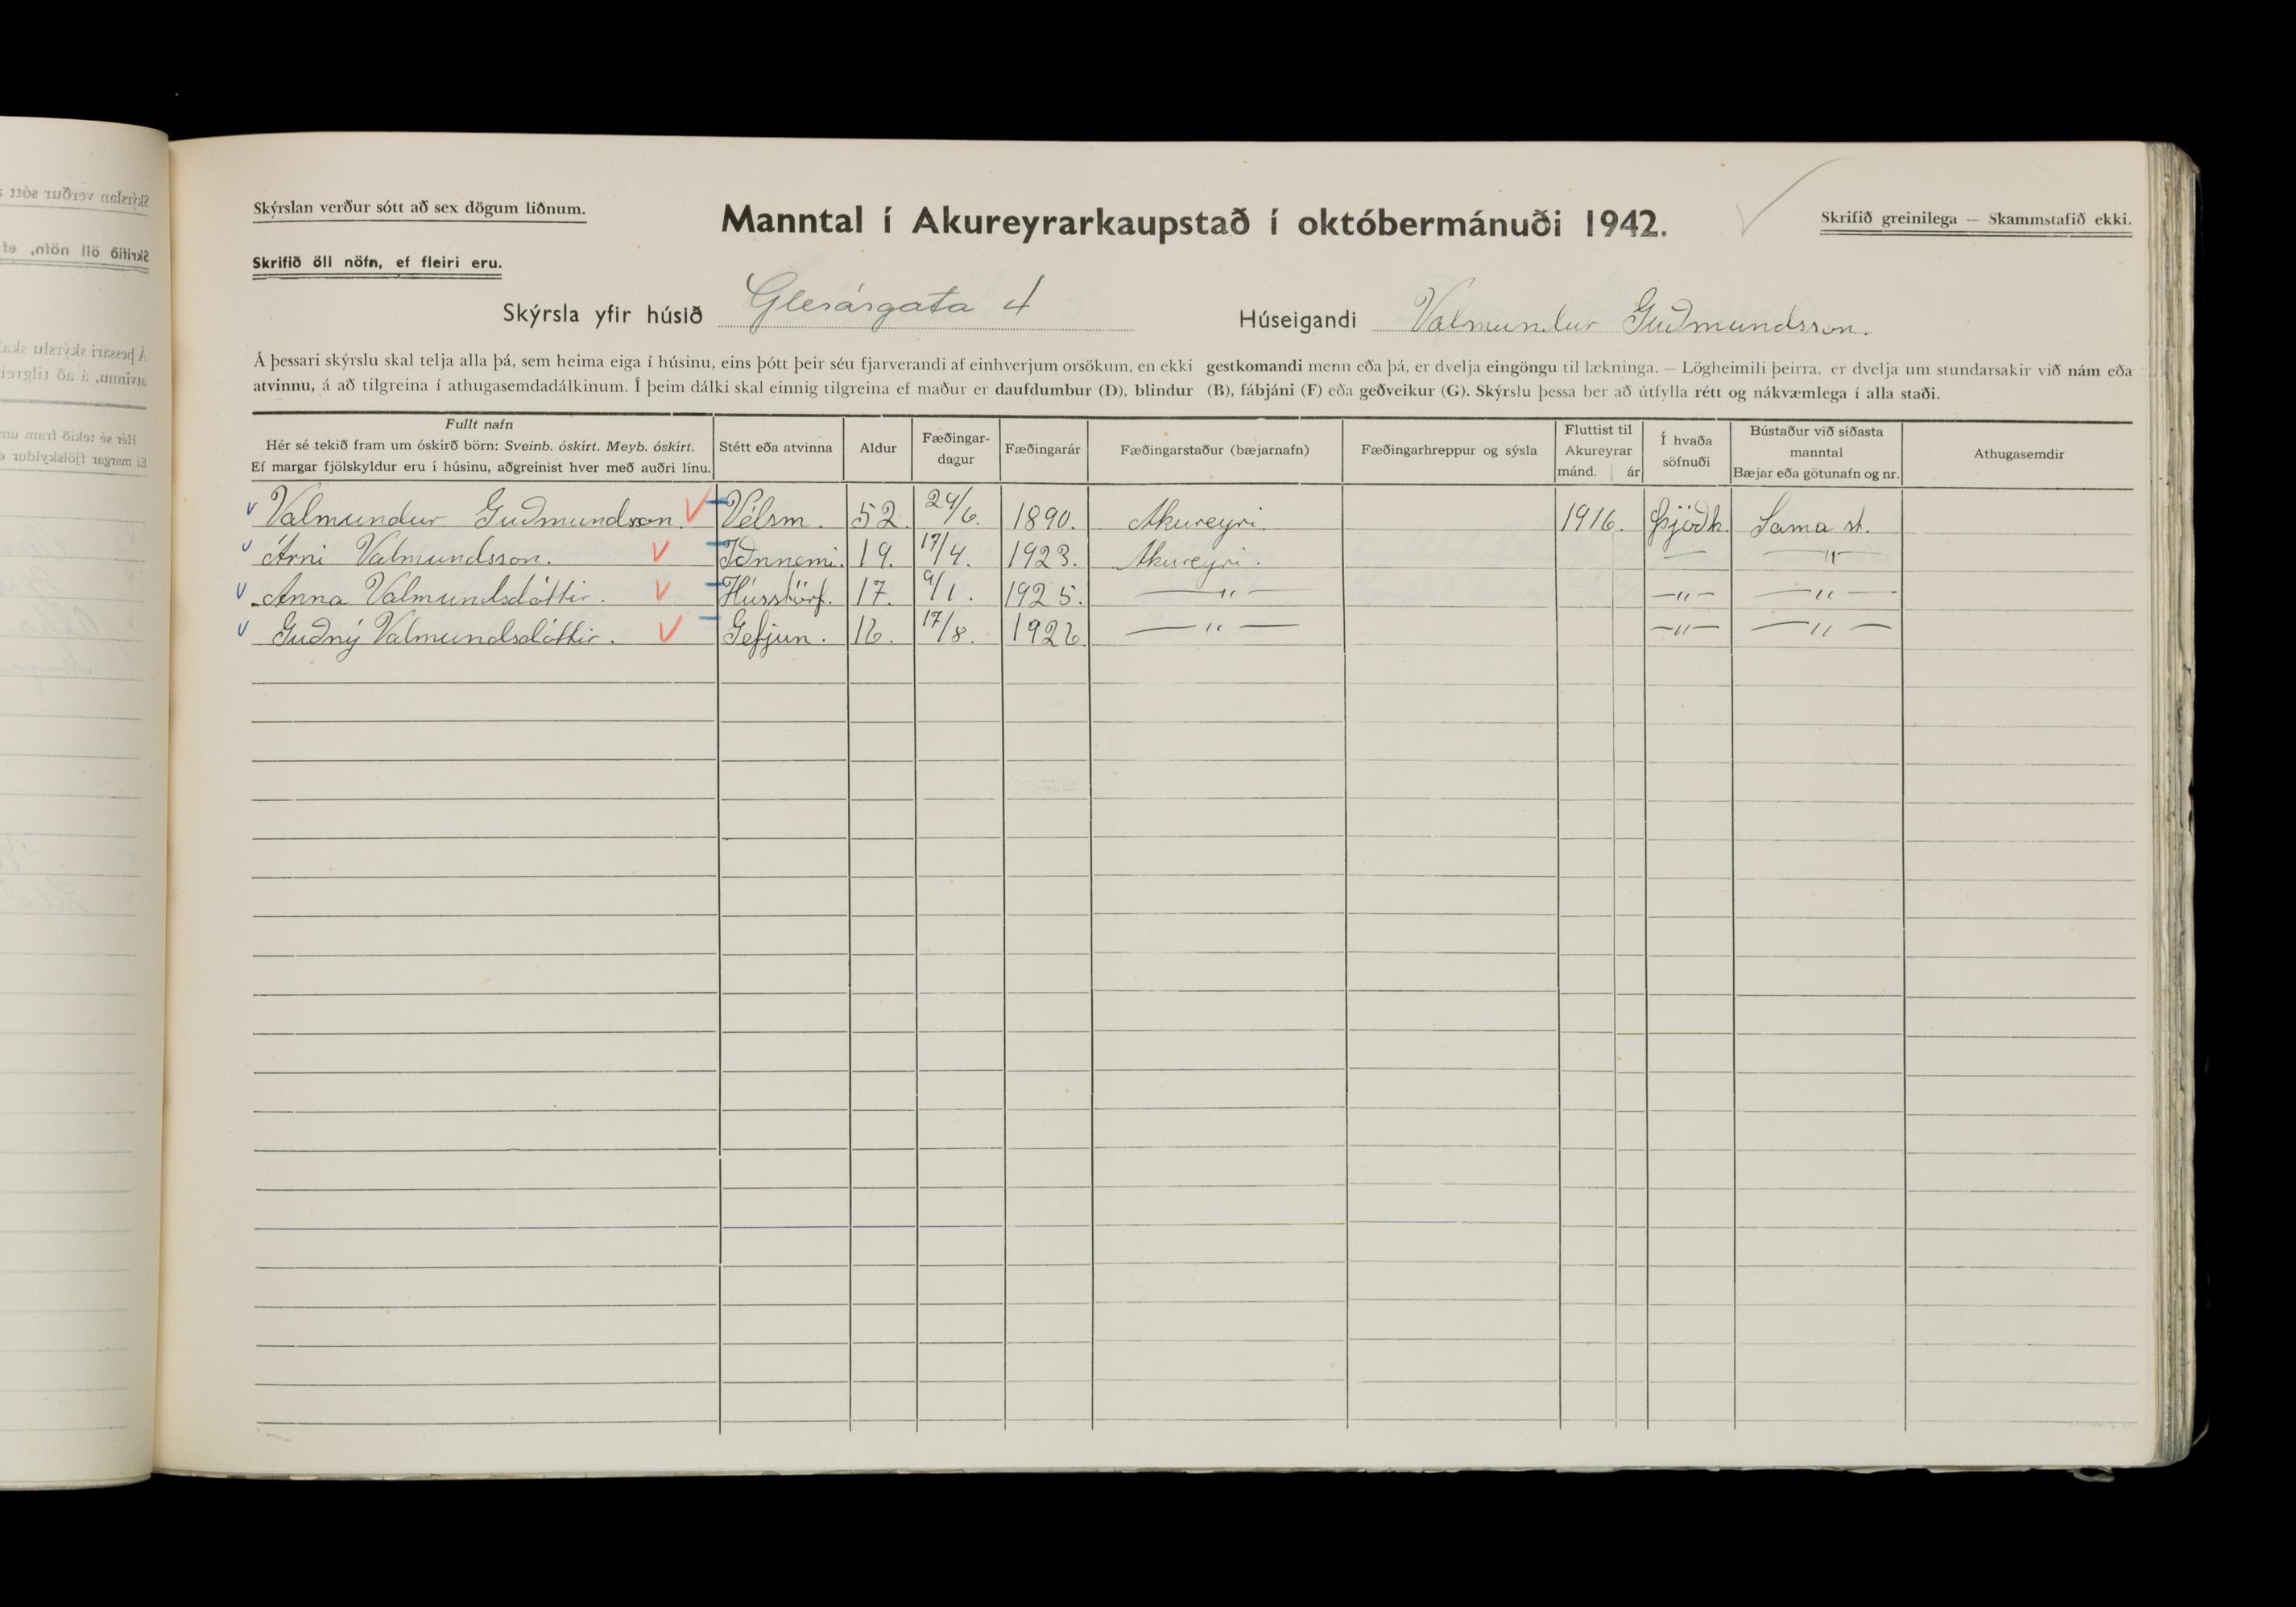 Skýrslan verður sótt að sex dögum liðnum.
Manntal í Akureyrarkaupstað í októbermánuði 1942.
Skrifið greinilega — Skammstafið ekki.
Skrifið öll nöfn, ef fleiri eru.
Skýrsla yfir húsið Glerárgata 4 Húseigandi Valmundur Guðmundsson.
Á þessari skýrslu skal telja alla þá, sem heima eiga í húsinu, eins þótt þeir séu fjarverandi af einhverjum orsökum, en ekki gestkomandi menn eða þá, er dvelja eingöngu til lækninga. — Lögheimili þeirra, er dvelja um stundarsakir við nám eða
atvinnu, á að tilgreina í athugasemdadálkinum. Í þeim dálki skal einnig tilgreina ef maður er daufdumbur (D), blindur (B), fábjáni (F) eða geðveikur (G). Skýrslu þessa ber að útfylla rétt og nákvæmlega í alla staði.
Fullt nafn
Hér sé tekið fram um óskírð börn: Sveinb. óskírt. Meyb. óskírt.
Ef margar fjölskyldur eru í húsinu, aðgreinist hver með auðri línu.
Stétt eða atvinna
Aldur
Fæðingar-
dagur
Fæðingarár
Fæðingarstaður (bæjarnafn)
Fæðingarhreppur og sýsla
Fluttist til
Akureyrar
mánd. ár
Í hvaða
söfnuði
Bústaður við síðasta
manntal
Bæjar eða götunafn og nr.
Athugasemdir
Valmundur Guðmundsson. Vélsm. 52. 24/6. 1890. Akureyri. 1916. Þjóðk. Sama st.
Árni Valmundsson. Iðnnemi. 19. 17/4. 1923. Akureyri. — —"—
Anna Valmundsdóttir. Hússtörf. 17. 9/1. 1925. —"— —"— —"—
Guðný Valmundsdóttir. Gefjun. 16. 17/8. 1926. —"— —"— —"—